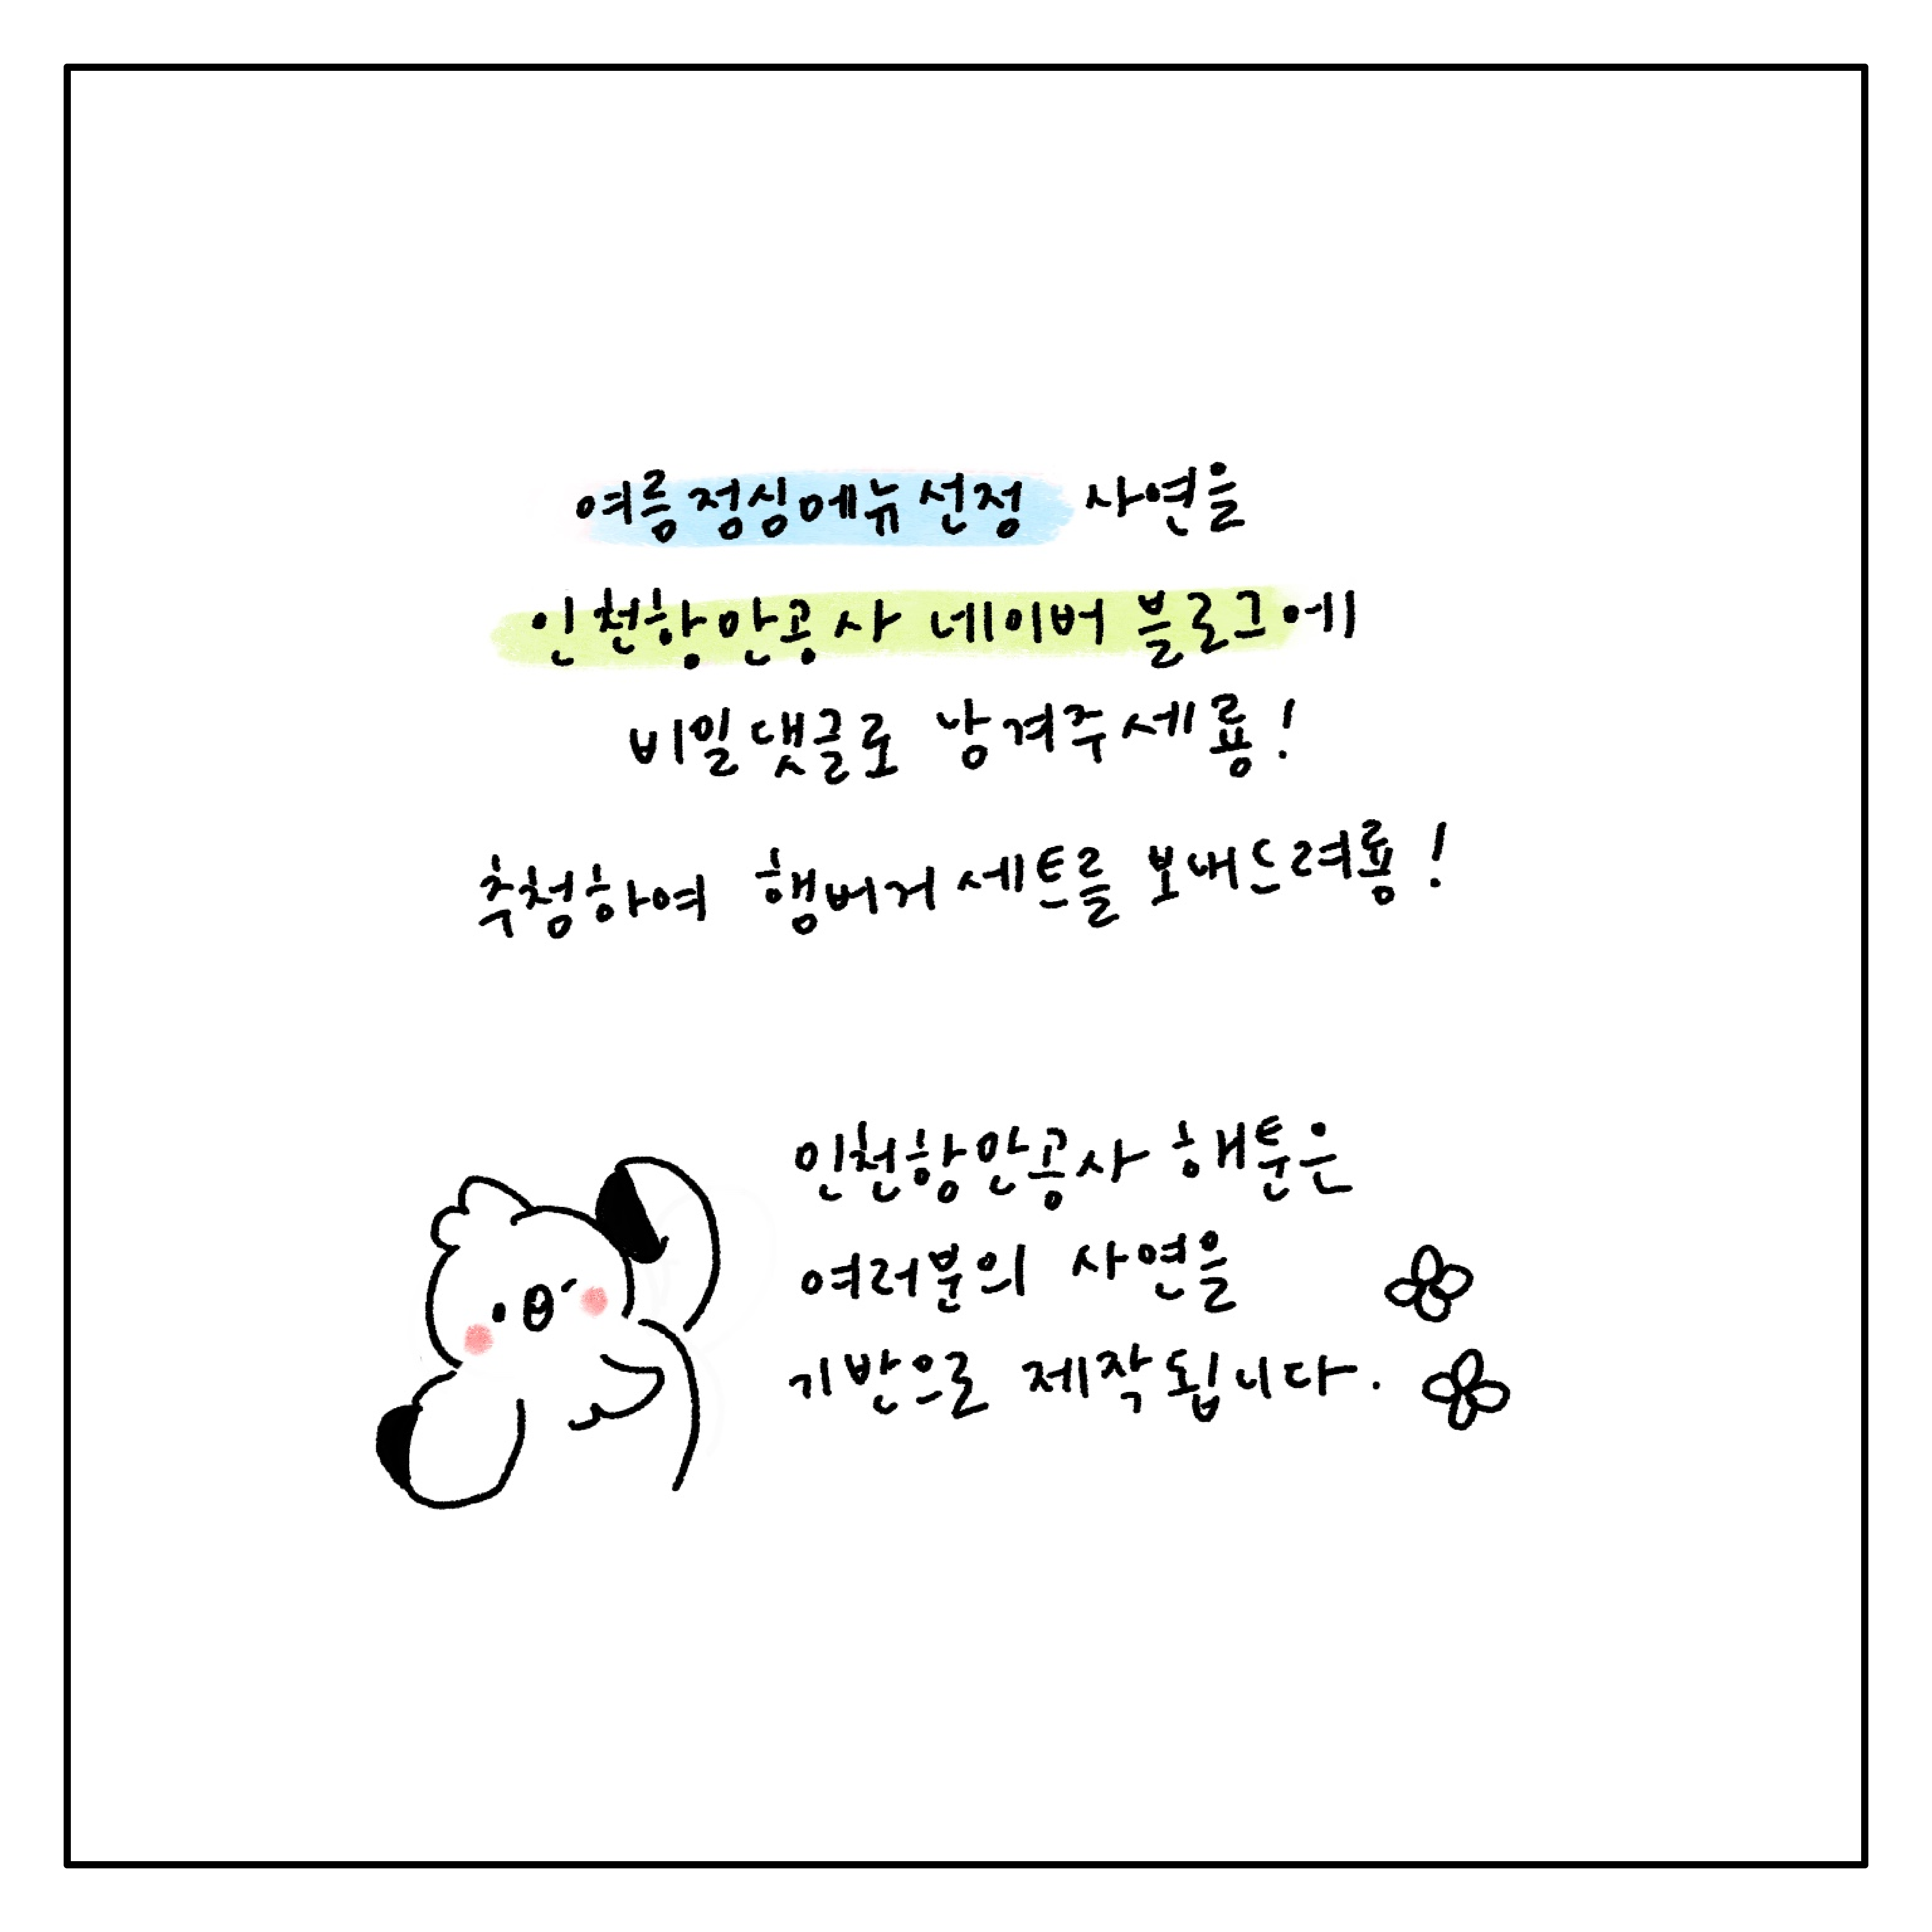 여릉정싱메뉴선정 사연을
인천항만공사 네이버 블로그에
비밀댓글로 낭겨주세룡!
추청하여 행버거세트를 보내드려룡!
인천항만공사 해툰은
여러분의 사연을
기반으로 제작됩니다.